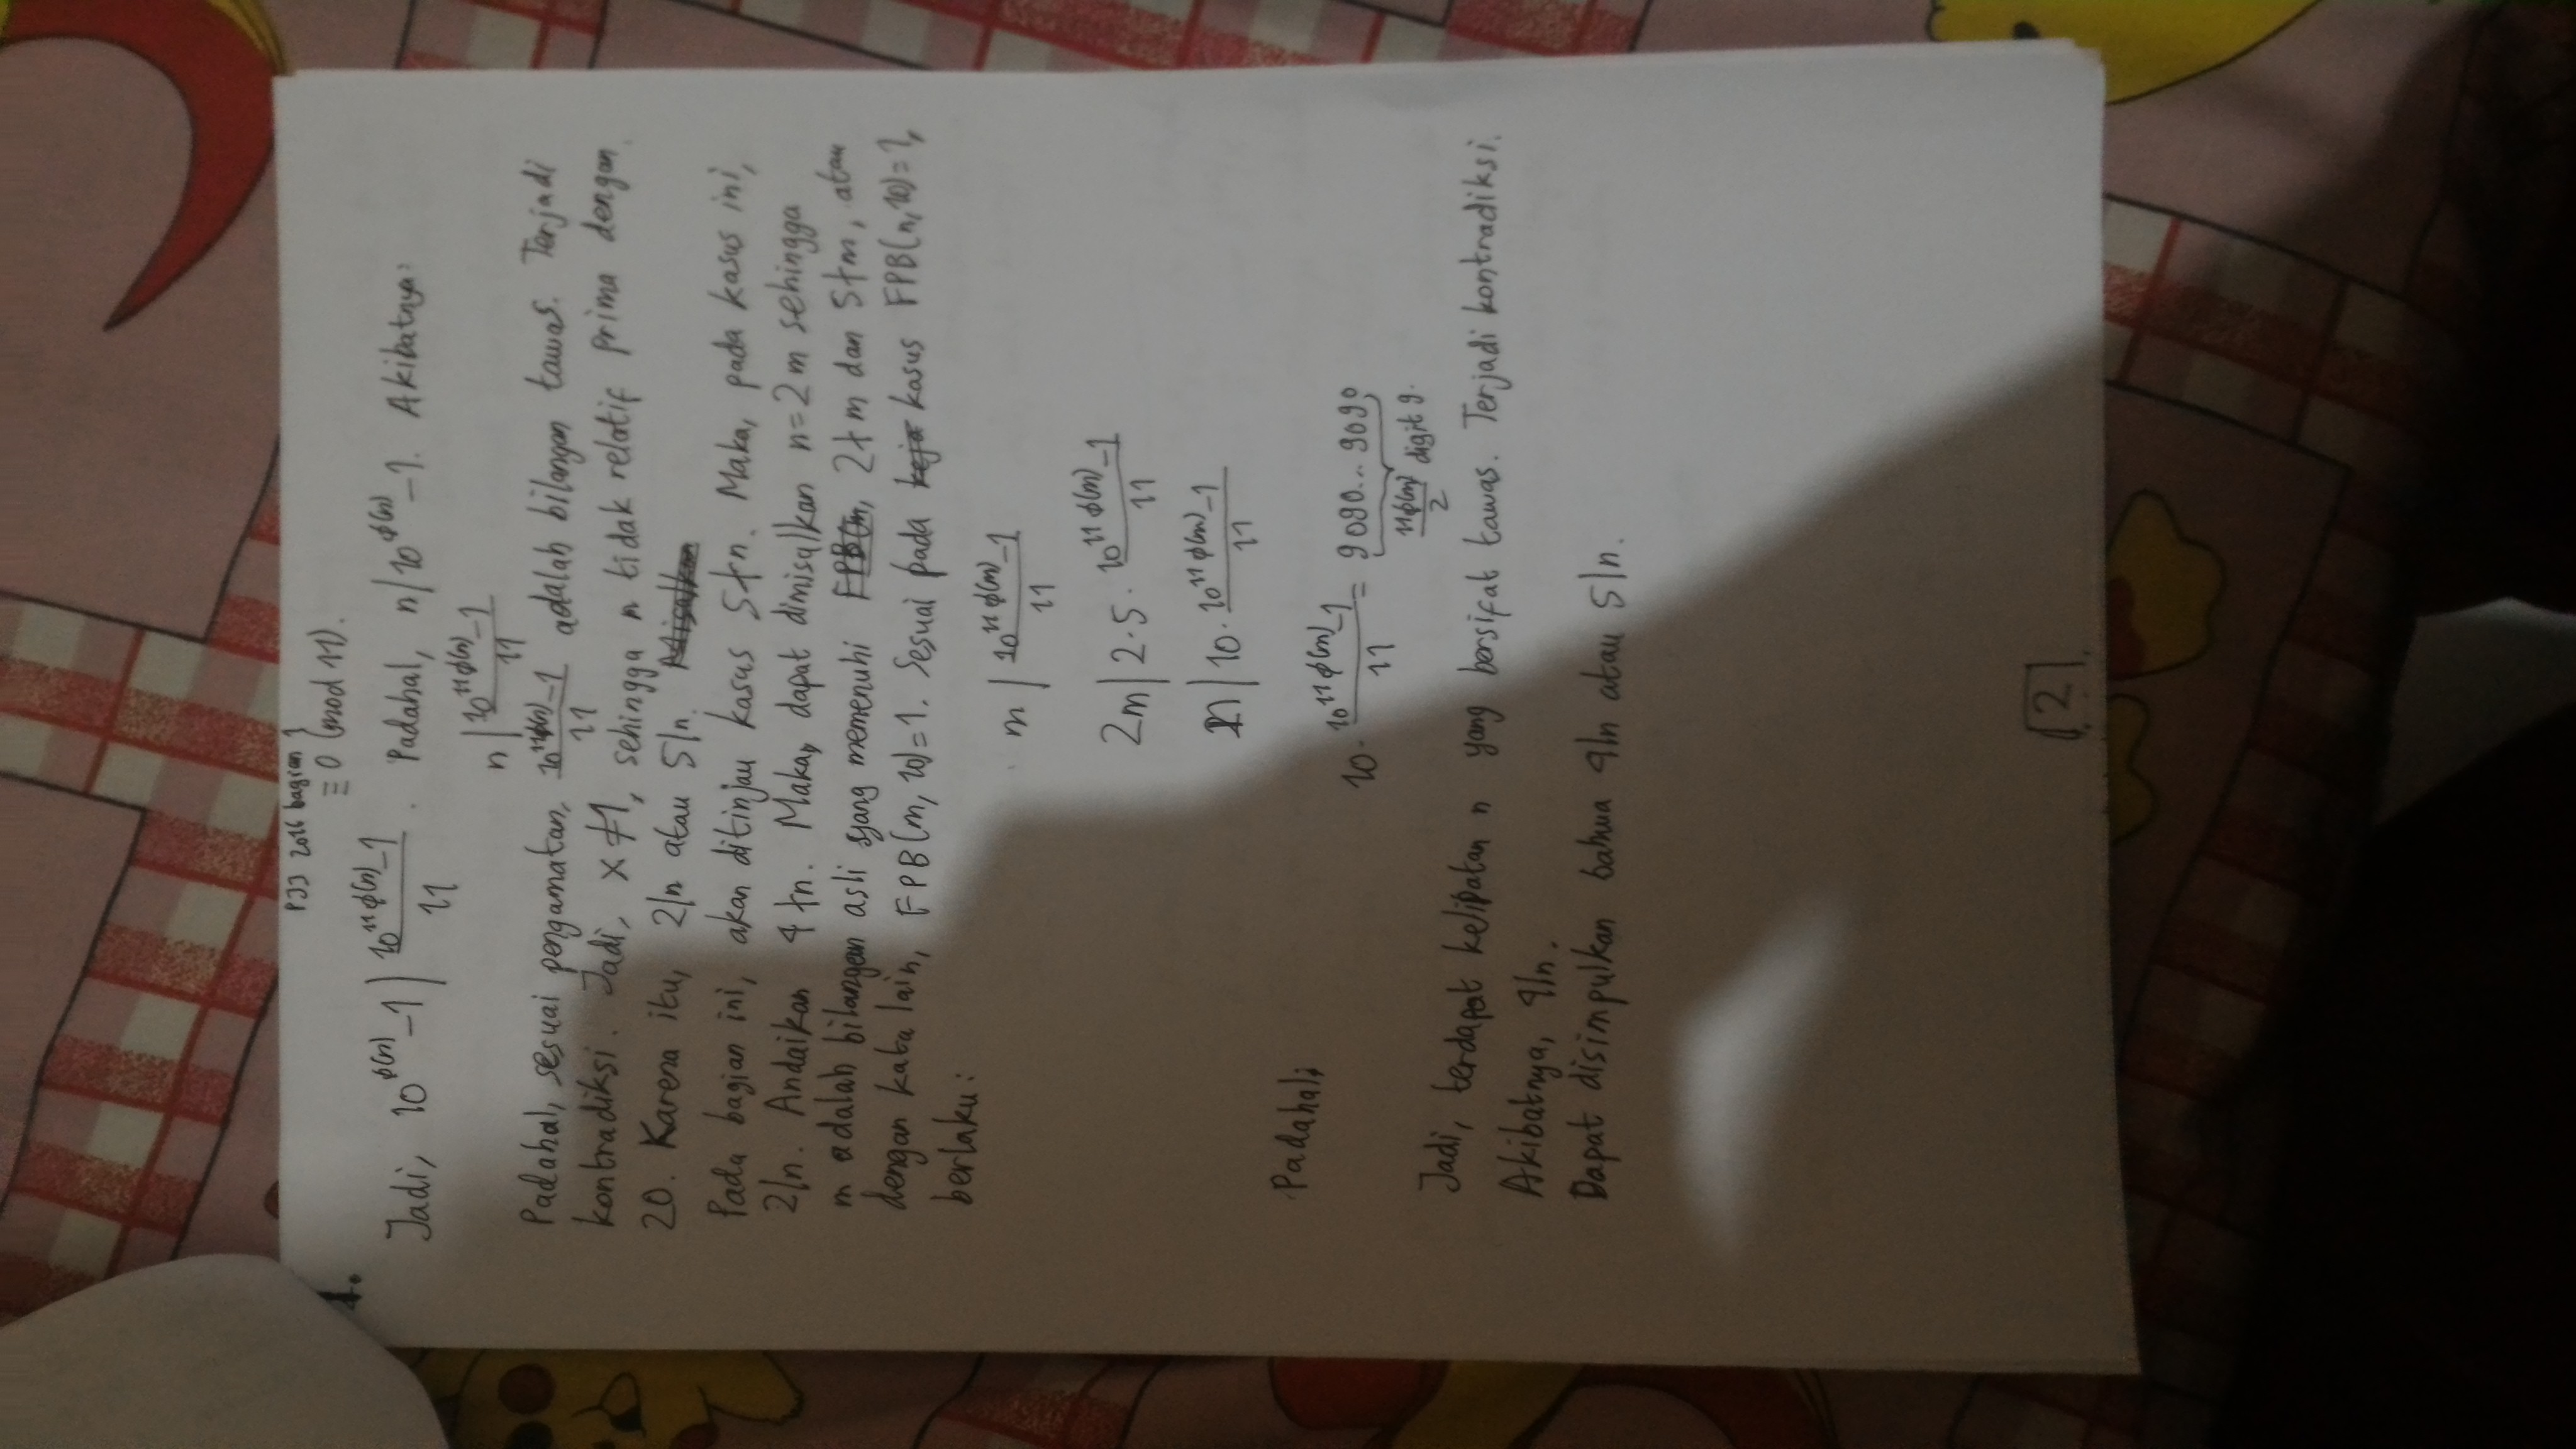 PJJ 2016 bagian 1
≡ 0 (mod 11).
1.
Jadi, 10^φ(n) - 1 | (10^11φ(n) - 1)/11 . Padahal, n | 10^φ(n) - 1. Akibatnya:
n | (10^11φ(n) - 1)/11
Padahal, sesuai pengamatan, (10^11φ(n) - 1)/11 adalah bilangan tawas. Terjadi
kontradiksi. Jadi, x ≠ 1, sehingga n tidak relatif prima dengan
10. Karena itu, 2|n atau 5|n. Misalkan
Pada bagian ini, akan ditinjau kasus 5∤n. Maka, pada kasus ini,
2|n. Andaikan 4∤n. Maka, dapat dimisalkan n=2m sehingga
m adalah bilangan asli yang memenuhi FPB(m, 2∤m dan 5∤m, atau
dengan kata lain, FPB(m, 10)=1. Sesuai pada keja kasus FPB(n, 10)=1,
berlaku:
m | (10^11φ(m) - 1)/11
2m | 2·5· (10^11φ(m) - 1)/11
n | 10· (10^11φ(m) - 1)/11
Padahal,
10· (10^11φ(m) - 1)/11 = 9090... 9090
11φ(m)/2 digit 9.
Jadi, terdapat kelipatan n yang bersifat tawas. Terjadi kontradiksi.
Akibatnya, 4|n.
Dapat disimpulkan bahwa 4|n atau 5|n.
2